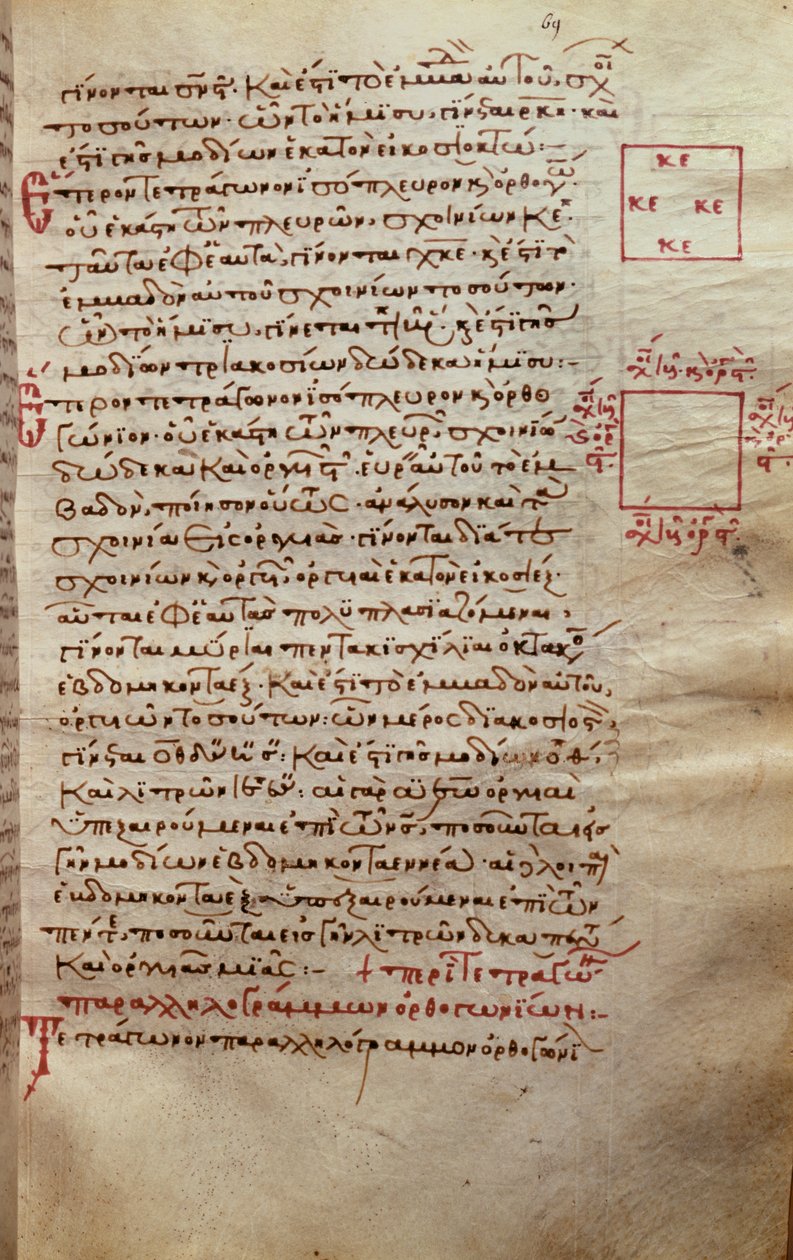 69
γίνονται σνϛ. Καὶ ἔστι τὸ ἐμβαδὸν αὐτοῦ, σχοι
τοσούτων. ὧν τὸ ἥμισυ, γίνεται ρκη. καὶ
ἔστι γῆς μοδίων ἑκατὸν εἰκοσιοκτώ:-
Ἕτερον τετράγωνον ἰσόπλευρον κ ὀρθογω
οὗ ἑκάστη τῶν πλευρῶν, σχοινίων κε.
ταῦτα ἐφ' ἑαυτὰ, γίνονται χκε. κ ἔστι τὸ
ἐμβαδὸν αὐτοῦ σχοινίων τοσούτων.
ὧν τὸ ἥμισυ, γίνεται τιβ. κ ἔστι γῆς
μοδίων τριακοσίων δώδεκα ἥμισυ:-
Ἕτερον τετράγωνον ἰσόπλευρον κ ὀρθο
γώνιον. οὗ ἑκάστη τῶν πλευρ, σχοινίων
δώδεκα καὶ ὀργυιῶν ϛ. εὑρεῖν αὐτοῦ τὸ ἐμ
βαδὸν, ποίησον οὕτως. ἀνάλυσον καὶ τὰ
σχοινία εἰς ὀργυιάς. γίνονται διὰ τὸ
σχοινίων κ ὀργυι, ὀργυιαὶ ἑκατὸν εἰκοσιέξ.
αὗται ἐφ' ἑαυτὰς πολυπλασιαζόμεναι,
γίνονται μύριαι πεντακισχίλιαι ὀκτακο
ἑβδομηκονταέξ. Καὶ ἔστι τὸ ἐμβαδὸν αὐτοῦ,
ὀργυιῶν τοσούτων: ὧν μέρος διακοσιοστ,
γίνεται οθ. Καὶ ἔστι γῆς μοδίων οθ,
Καὶ λιτρῶν ιε: αἱ γὰρ ὀργυιαὶ
ὑπεξαιρούμεναι ἐπὶ τῶν σ, ποσοῦνται εἰς
γῆν μοδίων ἑβδομηκονταεννέα. αἱ λοιπαὶ
ἑβδομηκονταέξ ὑπεξαιρούμεναι ἐπὶ τῶν
πέντε, ποσοῦνται εἰς γῆν λιτρῶν δεκαπέντε
Καὶ ὀργυιᾶς μιᾶς:- + περὶ τετραγών
παραλληλογράμμων ὀρθογωνίων:-
Τετράγωνον παραλληλόγραμμον ὀρθογώνι
κε
κε κε
κε
σχοι ιβ κ ὀργ ϛ
σχοι ιβ κ ὀργ ϛ
σχοι ιβ κ ὀργ ϛ
σχοι ιβ ὀργ ϛ